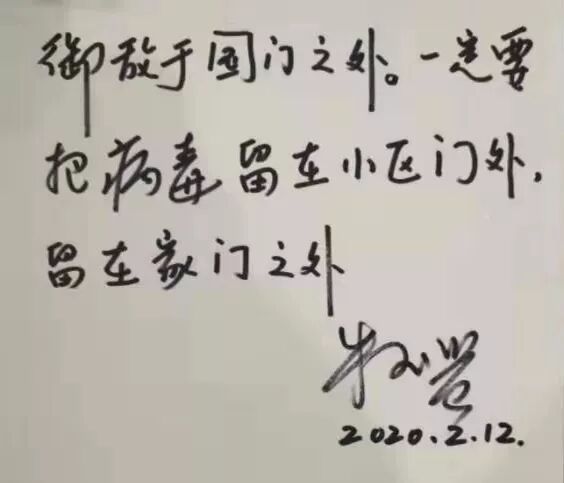 御敌于国门之外。一定要
把病毒留在小区门外，
留在家门之外
2020.2.12.